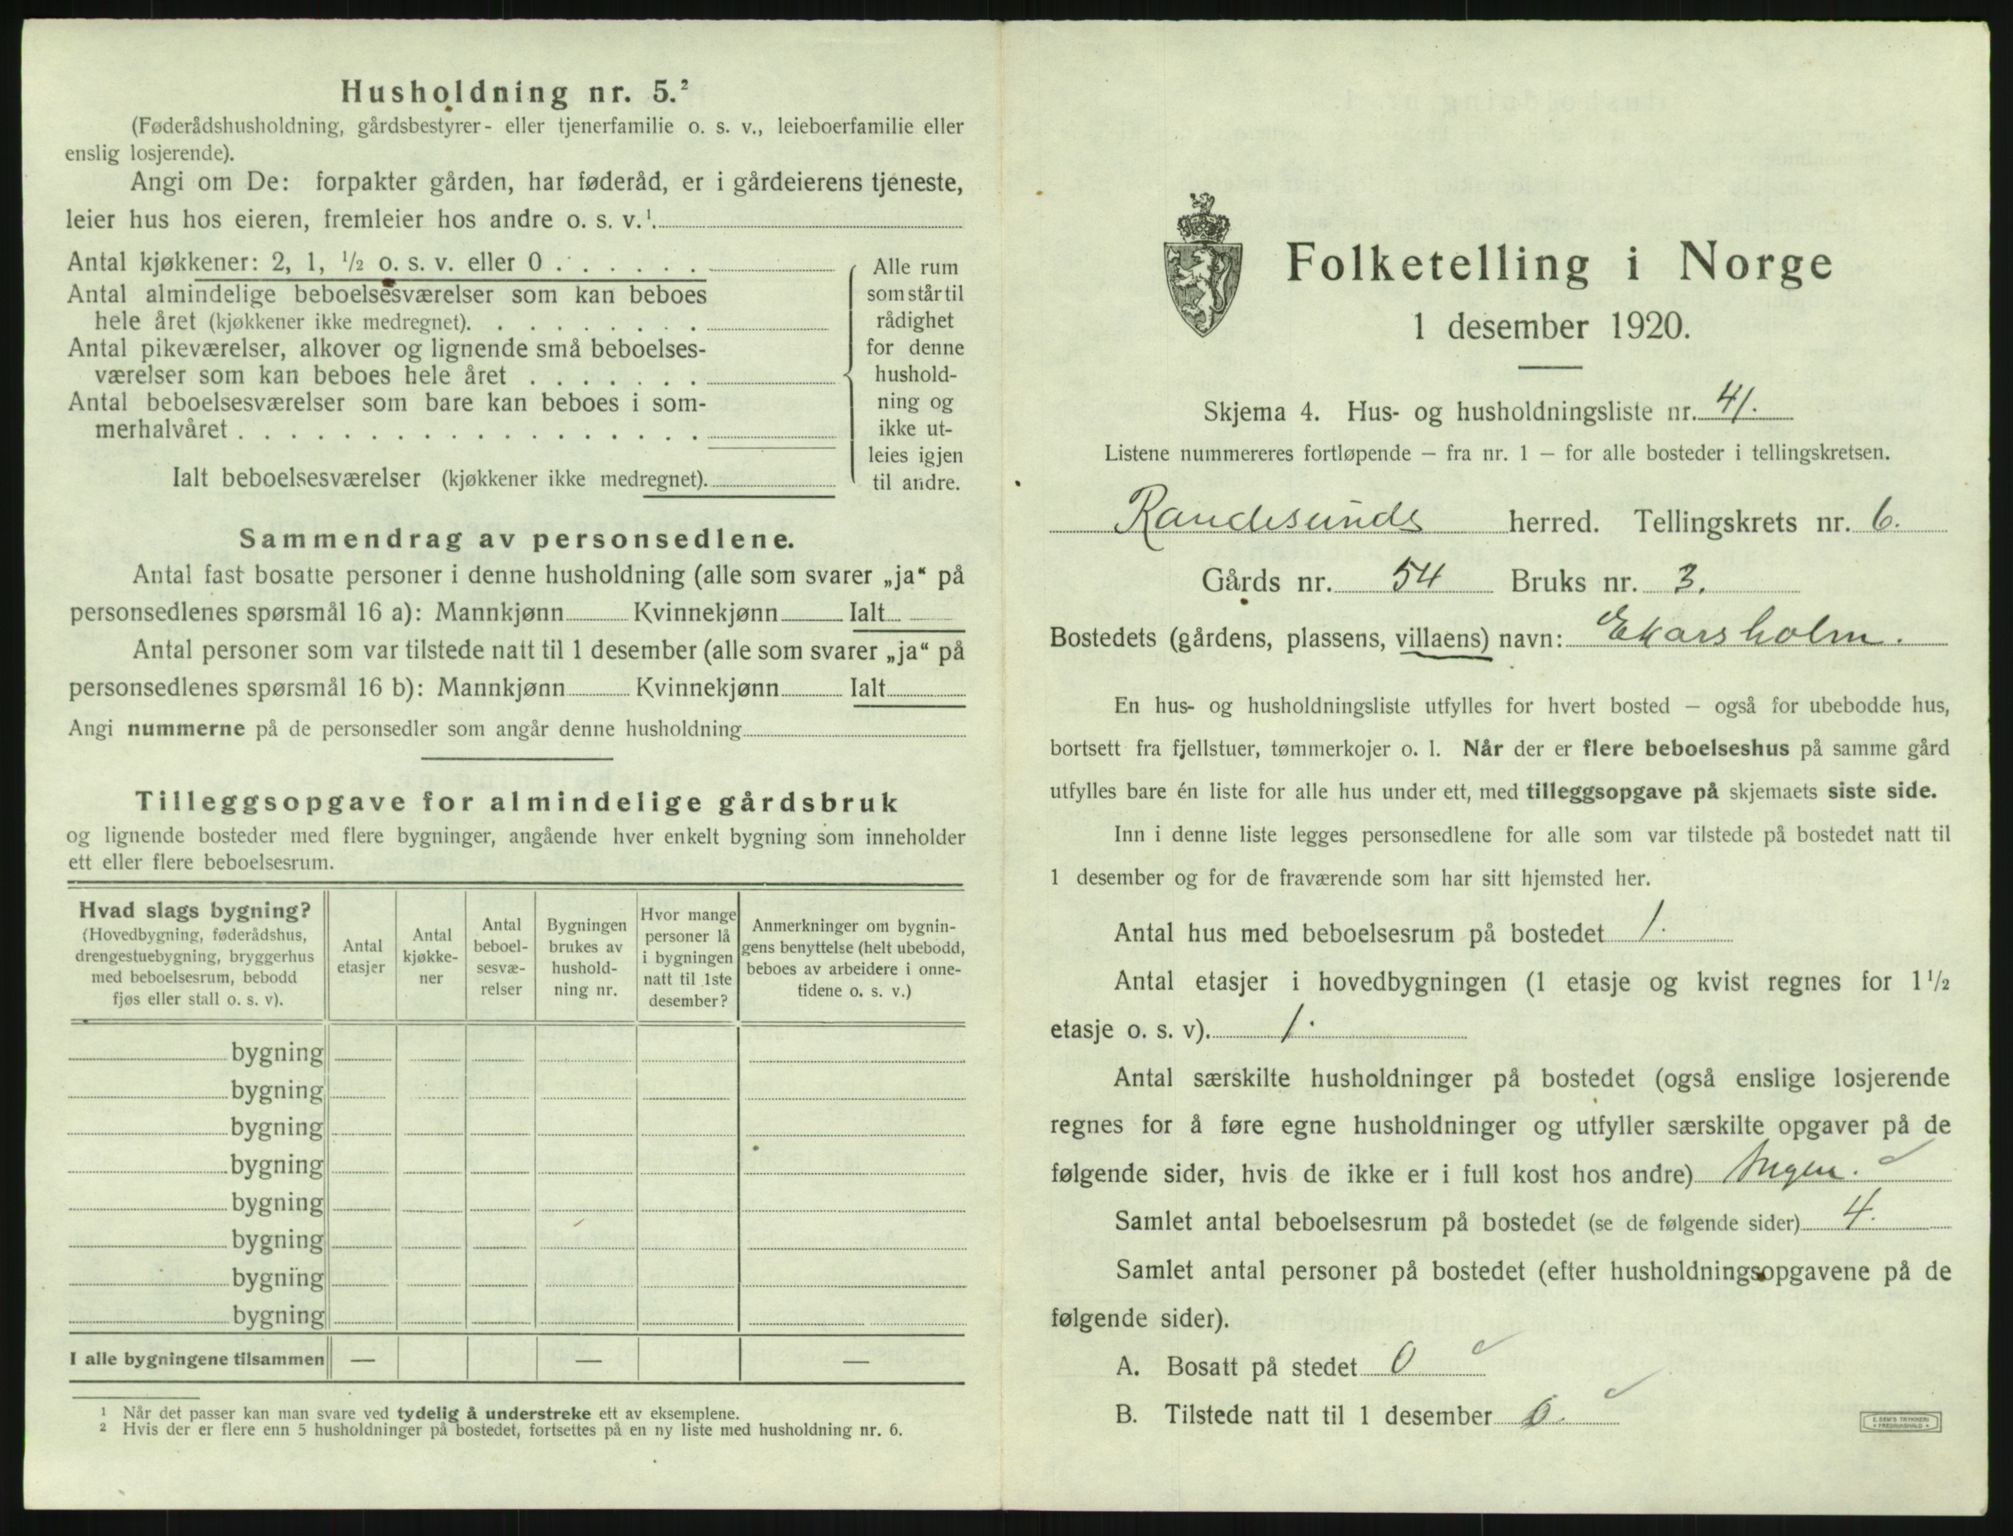 Husholdning nr. 5.²
(Føderådshusholdning, gårdsbestyrer- eller tjenerfamilie o. s. v., leieboerfamilie eller
enslig losjerende).
Angi om De: forpakter gården, har føderåd, er i gårdeierens tjeneste,
leier hus hos eieren, fremleier hos andre o. s. v.¹
Antal kjøkkener: 2, 1, ½ o. s. v. eller 0 . . . . . .
Antal almindelige beboelsesværelser som kan beboes
hele året (kjøkkener ikke medregnet). . . . . . . . .
Antal pikeværelser, alkover og lignende små beboelses-
værelser som kan beboes hele året . . . . . . .
Antal beboelsesværelser som bare kan beboes i som-
merhalvåret . . . . . . . . . . . . . . . . . .
Ialt beboelsesværelser (kjøkkener ikke medregnet).
Alle rum
som står til
rådighet
for denne
hushold-
ning og
ikke ut-
leies igjen
til andre.
Sammendrag av personsedlene.
Antal fast bosatte personer i denne husholdning (alle som svarer „ja“ på
personsedlenes spørsmål 16 a): Mannkjønn Kvinnekjønn Ialt
Antal personer som var tilstede natt til 1 desember (alle som svarer „ja“ på
personsedlenes spørsmål 16 b): Mannkjønn Kvinnekjønn Ialt
Angi nummerne på de personsedler som angår denne husholdning
Tilleggsopgave for almindelige gårdsbruk
og lignende bosteder med flere bygninger, angående hver enkelt bygning som inneholder
ett eller flere beboelsesrum.
Hvad slags bygning?
(Hovedbygning, føderådshus,
drengestuebygning, bryggerhus
med beboelsesrum, bebodd
fjøs eller stall o. s. v).
Antal
etasjer
Antal
kjøkke-
ner
Antal
beboel-
sesvæ-
relser
Bygningen
brukes av
hushold-
ning nr.
Hvor mange
personer lå
i bygningen
natt til 1ste
desember?
Anmerkninger om bygnin-
gens benyttelse (helt ubebodd,
beboes av arbeidere i onne-
tidene o. s. v.)
bygning
bygning
bygning
bygning
bygning
bygning
bygning
bygning
I alle bygningene tilsammen — — —
¹ Når det passer kan man svare ved tydelig å understreke ett av eksemplene.
² Hvis der er flere enn 5 husholdninger på bostedet, fortsettes på en ny liste med husholdning nr. 6.
Folketelling i Norge
1 desember 1920.
Skjema 4. Hus- og husholdningsliste nr. 41.
Listene nummereres fortløpende – fra nr. 1 – for alle bosteder i tellingskretsen.
Randesunds herred. Tellingskrets nr. 6.
Gårds nr. 54 Bruks nr. 3.
Bostedets (gårdens, plassens, villaens) navn: Ekarsholm.
En hus- og husholdningsliste utfylles for hvert bosted – også for ubebodde hus,
bortsett fra fjellstuer, tømmerkojer o. l. Når der er flere beboelseshus på samme gård
utfylles bare én liste for alle hus under ett, med tilleggsopgave på skjemaets siste side.
Inn i denne liste legges personsedlene for alle som var tilstede på bostedet natt til
1 desember og for de fraværende som har sitt hjemsted her.
Antal hus med beboelsesrum på bostedet 1.
Antal etasjer i hovedbygningen (1 etasje og kvist regnes for 1½
etasje o. s. v). 1.
Antal særskilte husholdninger på bostedet (også enslige losjerende
regnes for å føre egne husholdninger og utfyller særskilte opgaver på de
følgende sider, hvis de ikke er i full kost hos andre) Ingen.
Samlet antal beboelsesrum på bostedet (se de følgende sider) 4.
Samlet antal personer på bostedet (efter husholdningsopgavene på de
følgende sider).
A. Bosatt på stedet 0
B. Tilstede natt til 1 desember 0.
E. SEM'S TRYKKERI
FREDRIKSHALD